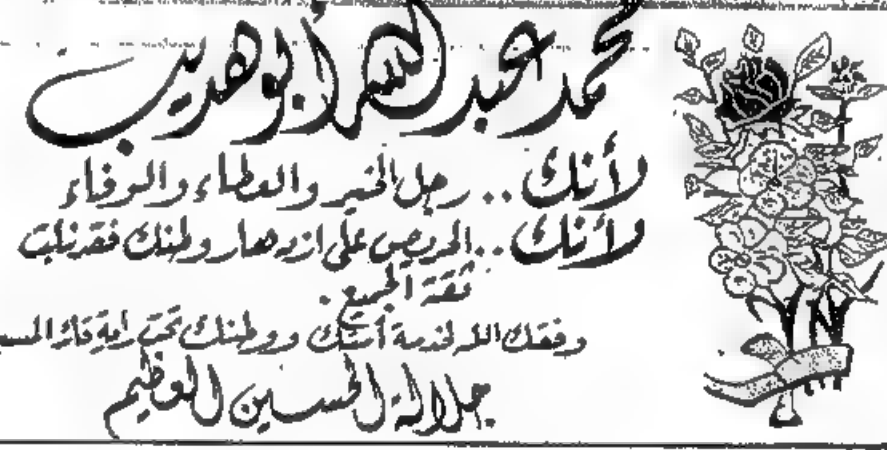 محمد عبد الله أبو هديب
لأنك .. رجل الخير والعطاء والوفاء
ولأنك .. الحريص على ازدهار وطنك فقد نلت
ثقة الجميع .
وفقك الله لخدمة أمتك ووطنك تحت راية قائد
جلالة الحسين العظيم